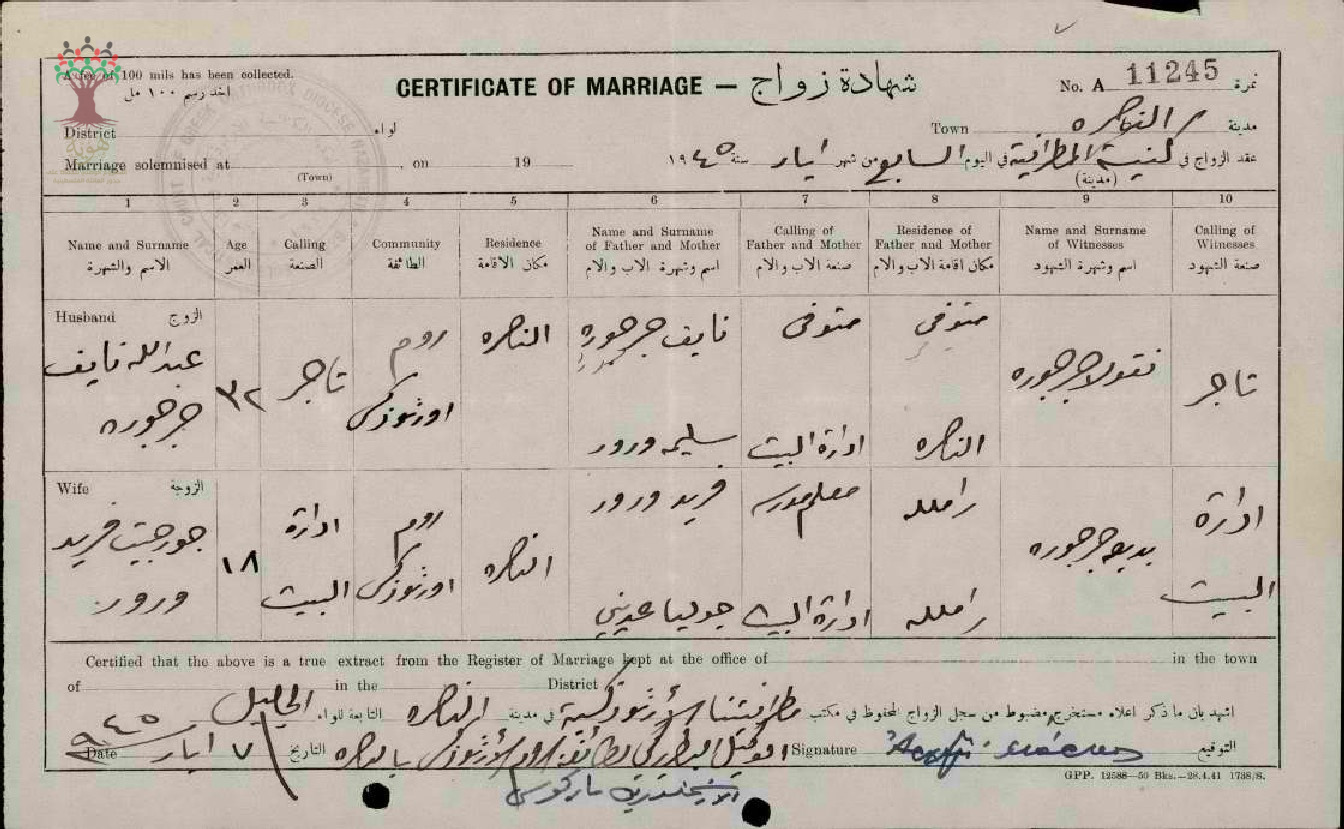 A fee of 100 mils has been collected.
اخذ رسم ١٠٠ مل
CERTIFICATE OF MARRIAGE — شهادة زواج
No. A 11245 نمرة
District لواء
Town الناصره مدينة
Marriage solemnised at , on 19
(Town)
عقد الزواج في كنيسة المطرانية في اليوم السابع من شهر ايار سنة ١٩٤٥
(مدينة)
1 2 3 4 5 6 7 8 9 10
Name and Surname
الاسم والشهرة
Age
العمر
Calling
الصنعة
Community
الطائفة
Residence
مكان الاقامة
Name and Surname
of Father and Mother
اسم وشهرة الاب والام
Calling of
Father and Mother
صنعة الاب والام
Residence of
Father and Mother
مكان اقامة الاب والام
Name and Surname
of Witnesses
اسم وشهرة الشهود
Calling of
Witnesses
صنعة الشهود
Husband الزوج
عبدالله نايف
جرجوره
٣٢
تاجر
روم
اورثوذكس
الناصره
نايف جرجوره
سليمه ورور
متوفى
ادارة البيت
متوفى
الناصره
نقولا جرجوره
تاجر
Wife الزوجة
جورجيت فريد
ورور
١٨
ادارة
البيت
روم
اورثوذكس
الناصره
فريد ورور
جوليا
معلم مدرسه
ادارة البيت
رام الله
رام الله
بديع جرجوره
ادارة
البيت
Certified that the above is a true extract from the Register of Marriage kept at the office of in the town
of in the District
اشهد بان ما ذكر اعلاه مستخرج مضبوط من سجل الزواج المحفوظ في مكتب مطرانيتنا الأرثوذكسية في مدينة الناصره التابعة للواء الجليل
Date ٧ ايار ٩٤٥ التاريخ
الوكيل البطريركي لطائفة الروم الأرثوذكس بالناصره
Signature التوقيع
الارشمندريت ماركوس
GPP. 12588—50 Bks.—28.4.41 1738/S.